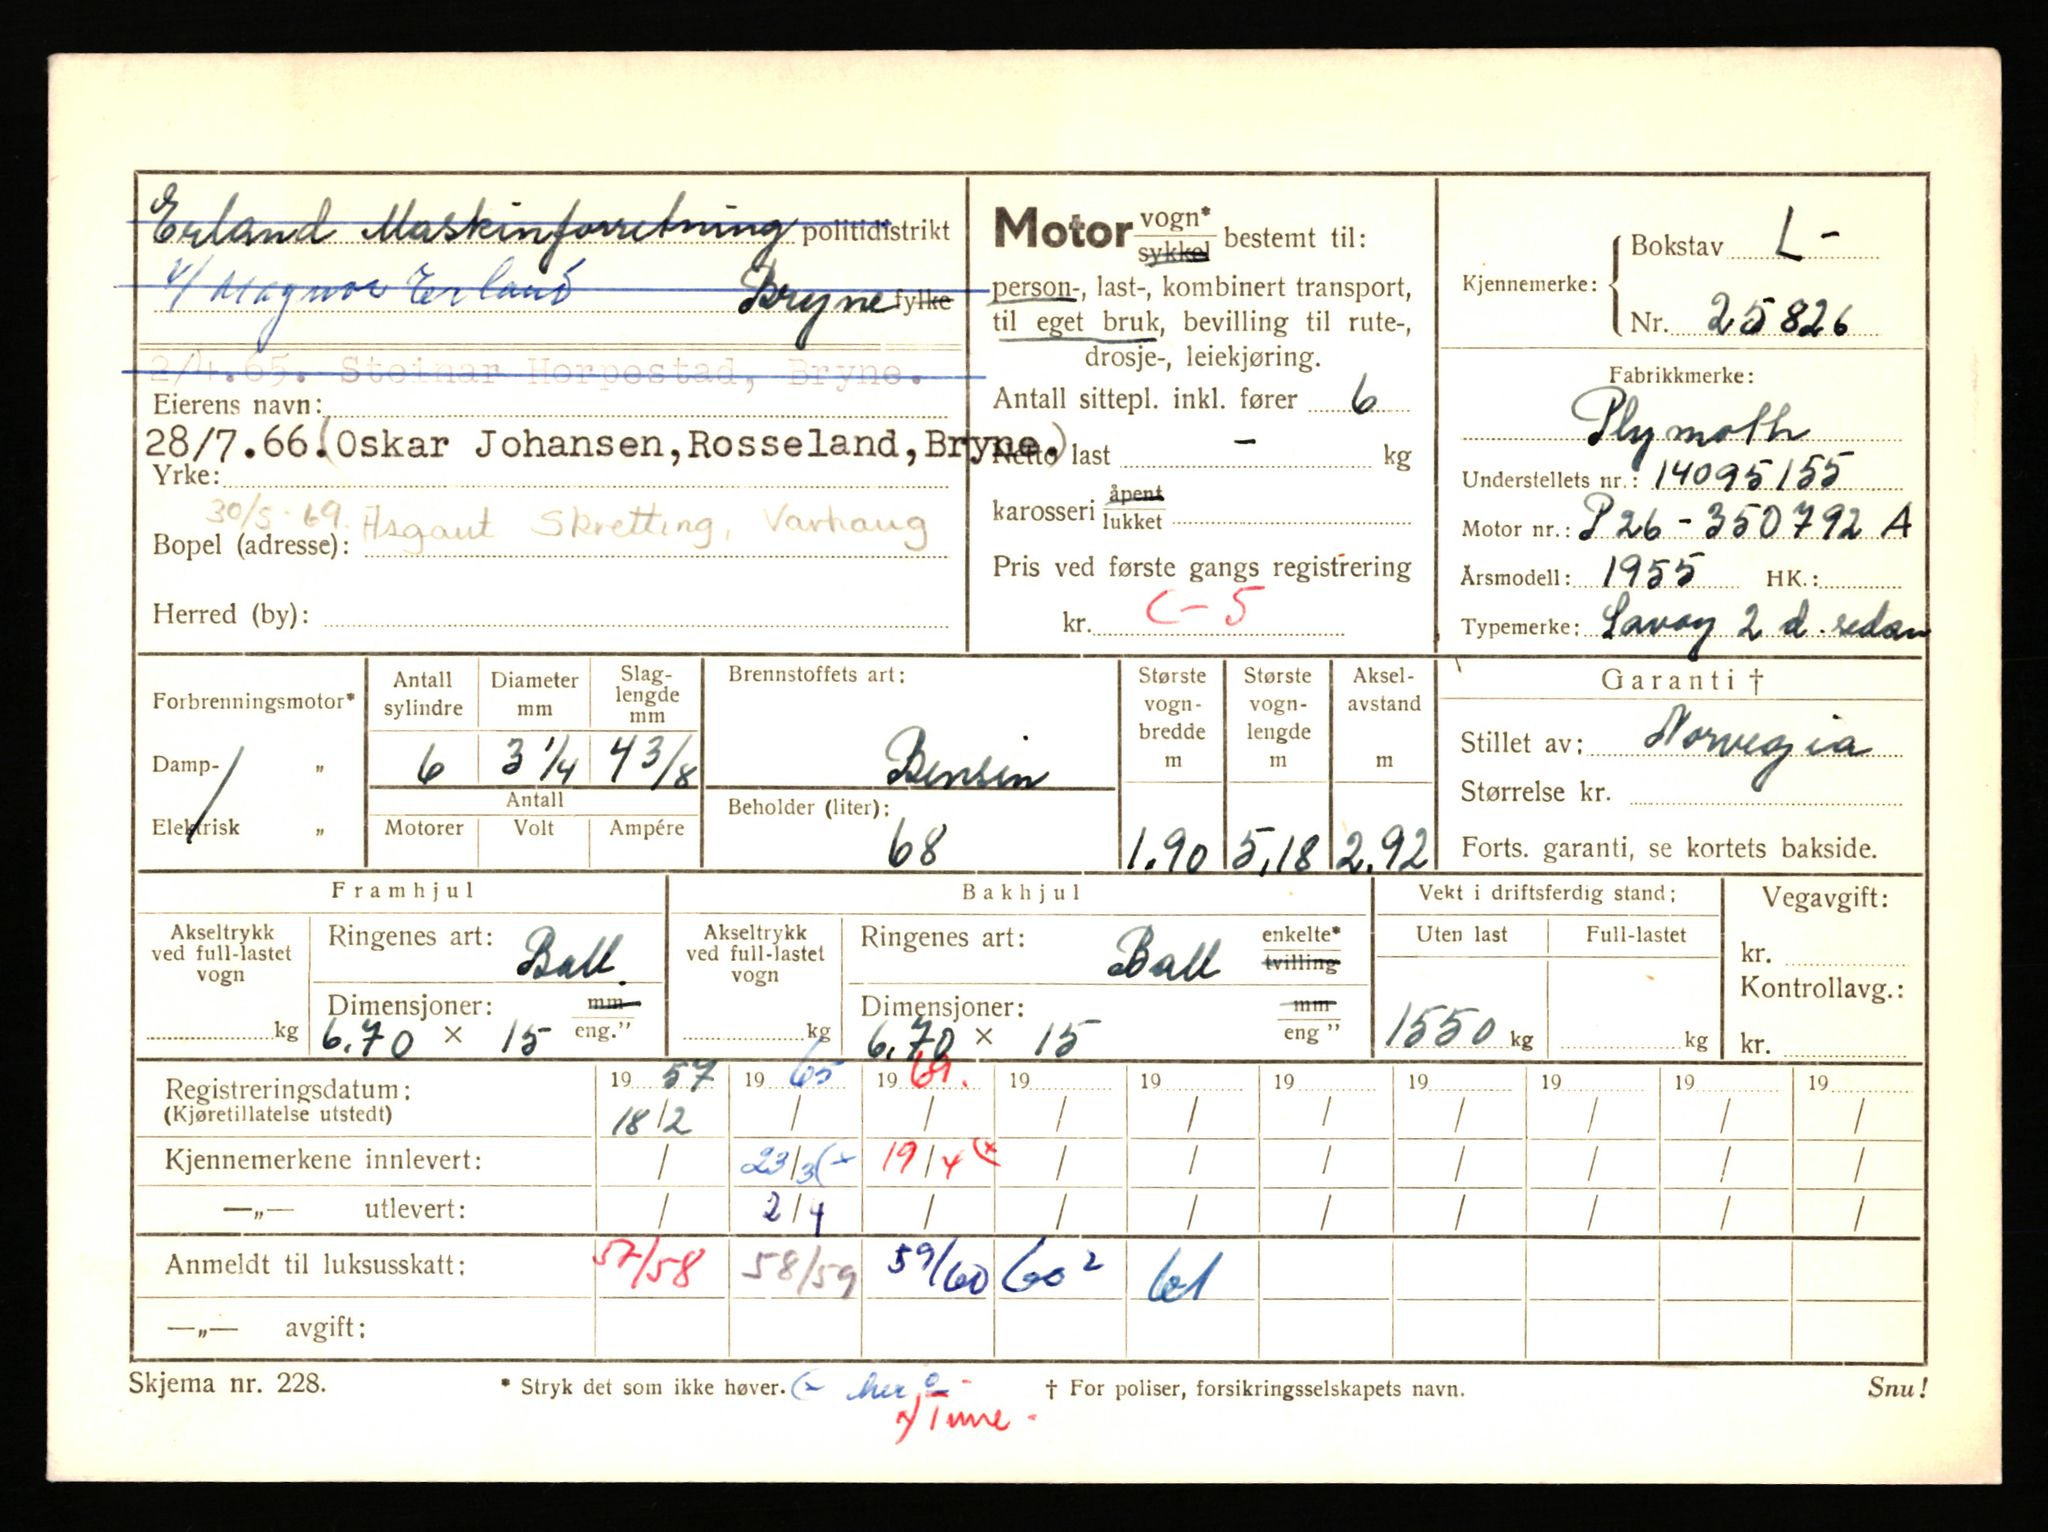 Erland Maskinforretning politidistrikt
v/ Magnus Erland Bryne fylke
2/4.65. Steinar Horpestad, Bryne.
Eierens navn:
28/7.66.(Oskar Johansen,Rosseland,Bryne.)
Yrke:
30/5-69. Asgaut Skretting, Varhaug
Bopel (adresse):
Herred (by):
Motor vogn* / sykkel bestemt til:
person-, last-, kombinert transport,
til eget bruk, bevilling til rute-,
drosje-, leiekjøring.
Antall sittepl. inkl. fører 6
Netto last - kg
karosseri åpent / lukket
Pris ved første gangs registrering
kr. C-5
Kjennemerke: Bokstav L-
Nr. 25826
Fabrikkmerke:
Plymoth
Understellets nr.: 14095155
Motor nr.: P26-350792 A
Årsmodell: 1955 HK.:
Typemerke: Savoy 2 d. sedan
Forbrenningsmotor*
Damp- „
Elektrisk „
Antall sylindre 6
Diameter mm 3 1/4
Slaglengde mm 4 3/8
Antall
Motorer Volt Ampére
Brennstoffets art:
Bensin
Beholder (liter):
68
Største vognbredde m 1.90
Største vognlengde m 5,18
Akselavstand m 2.92
Garanti †
Stillet av: Norvegia
Størrelse kr.
Forts. garanti, se kortets bakside.
Framhjul
Akseltrykk ved full-lastet vogn kg
Ringenes art: Ball
Dimensjoner: mm
6.70 × 15 eng.”
Bakhjul
Akseltrykk ved full-lastet vogn kg
Ringenes art: Ball enkelte* / tvilling
Dimensjoner: mm
6.70 × 15 eng ”
Vekt i driftsferdig stand:
Uten last Full-lastet
1550 kg kg
Vegavgift:
kr.
Kontrollavg.:
kr.
Registreringsdatum: 19 57 19 65 19 69. 19 19 19 19 19 19 19
(Kjøretillatelse utstedt) 18/2 / / / / / / / / /
Kjennemerkene innlevert: / 23/3 (x 19/4 (x / / / / / / /
—„— utlevert: / 2/4 / / / / / / / /
Anmeldt til luksusskatt: 57/58 58/59 59/60 60² 61
—„— avgift:
Skjema nr. 228. * Stryk det som ikke høver. (x her † For poliser, forsikringsselskapets navn. Snu!
x) Time.